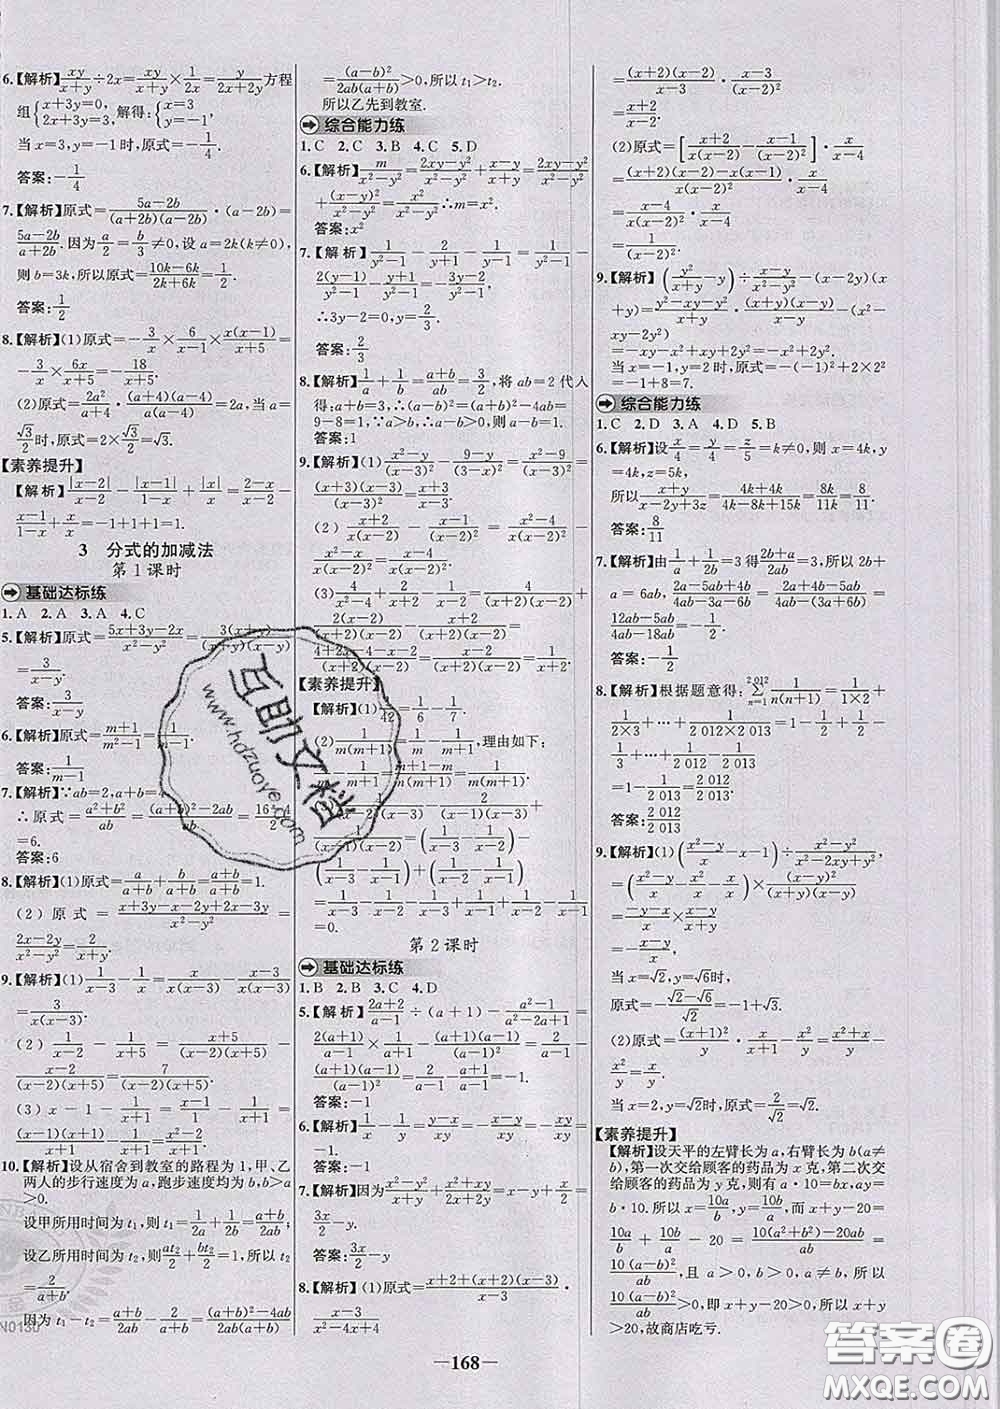 6.【解析】xy/(x+y)÷2x=xy/(x+y)×1/(2x)=y/(2x+2y)方程
组{x+3y=0, 2x+3y=3, 解得:{x=3, y=-1,
当x=3,y=-1时,原式=-1/4.
答案:-1/4
7.【解析】原式=(5a-2b)/((a+2b)(a-2b))·(a-2b)=
(5a-2b)/(a+2b).因为a/2=b/3≠0,设a=2k(k≠0),
则b=3k,所以原式=(10k-6k)/(2k+6k)=1/2.
答案:1/2
8.【解析】(1)原式=-3/x×6/(x-1)×x(x-1)/(x+5)=
-3/x×6x/(x+5)=-18/(x+5).
(2)原式=2a²/(a+4)·(a+4)(a-4)/(a(a-4))=2a,当a=
√3/2时,原式=2×√3/2=√3.
【素养提升】
【解析】|x-2|/(x-2)-|x-1|/(1-x)+|x|/x=(2-x)/(x-2)-
(x-1)/(1-x)+x/x=-1+1+1=1.
3 分式的加减法
第1课时
基础达标练
1.A 2.A 3.A 4.C
5.【解析】原式=(5x+3y-2x)/(x²-y²)=3(x+y)/((x+y)(x-y))=
3/(x-y).
答案:3/(x-y)
6.【解析】原式=(m+1)/(m²-1)=1/(m-1).
答案:1/(m-1)
7.【解析】∵ab=2,a+b=4
∴原式=(a²+b²)/ab=((a+b)²-2ab)/ab=(16-4)/2
=6.
答案:6
8.【解析】(1)原式=a/(a+b)+b/(a+b)=(a+b)/(a+b)=1.
(2)原式=(x+3y-x-2y+2x-3y)/(x²-y²)=
(2x-2y)/(x²-y²)=2/(x+y).
9.【解析】(1)1/(x-3)-1/x=x/(x(x-3))-(x-3)/(x(x-3))=
3/(x(x-3)).
(2)1/(x-2)-1/(x+5)=(x+5)/((x-2)(x+5))-
(x-2)/((x-2)(x+5))=7/((x-2)(x+5)).
(3)x-1-1/(x+1)=
(x-1)(x+1)/(x+1)-1/(x+1)=(x²-2)/(x+1).
10.【解析】设从宿舍到教室的路程为1,甲、乙
两人的步行速度为a,跑步速度均为b,b>a
>0.
设甲所用时间为t₁,则t₁=1/(2a)+1/(2b)=(a+b)/(2ab);
设乙所用时间为t₂,则at₂/2+bt₂/2=1,所以t₂
=2/(a+b).
因为t₁-t₂=(a+b)/(2ab)-2/(a+b)=((a+b)²-4ab)/(2ab(a+b))
=(a-b)²/(2ab(a+b))>0,所以t₁>t₂.
所以乙先到教室.
综合能力练
1.C 2.C 3.B 4.C 5.D
6.【解析】m/(x²-y²)=(2xy-y²)/(x²-y²)+(x-y)/(x+y)=(2xy-y²)/(x²-y²)
+(x-y)²/(x²-y²)=x²/(x²-y²)∴m=x².
答案:x²
7.【解析】1/(y²-1)-2/(y+1)-1/(1-y)=1/(y²-1)-
2(y-1)/(y²-1)+(y+1)/(y²-1)=(-y+4)/(y²-1)=2/(y²-1),
∴3y-2=0,y=2/3.
答案:2/3
8.【解析】1/a+1/b=(a+b)/ab=3/2,将ab=2代入
得:a+b=3,∴(a-b)²=(a+b)²-4ab=
9-8=1,∵a>b,∴a-b>0,则a-b=1.
答案:1
9.【解析】(1)(x²-y)/(x-3)²-(9-y)/(x-3)²=(x²-9)/(x-3)²=
(x+3)(x-3)/(x-3)²=(x+3)/(x-3).
(2)(x+2)/(x(x-2))-x/(x(x-2))=
2/(x(x-2)).
(3)4/(x²-4)+1/(x+2)=4/((x+2)(x-2))+
(x-2)/((x+2)(x-2))=(x+2)/((x+2)(x-2))=1/(x-2).
【素养提升】
【解析】(1)1/42=1/6-1/7.
(2)1/(m(m+1)),理由如下:
1/m-1/(m+1)=(m+1-m)/(m(m+1))=1/(m(m+1)).
=1/(x-1)-1/x+(1/(x-2)-
1/(x-1))-(1/(x-3)-
=0.
第2课时
基础达标练
1.B 2.B 3.C 4.D
5.【解析】(2a+2)/(a-1)÷(a+1)-(a²-1)/(a²-2a+1)=
2(a+1)/(a-1)×1/(a+1)-(a+1)(a-1)/(a-1)²=2/(a-1)-
(a+1)/(a-1)=(1-a)/(a-1)=-1.
答案:-1
答案:-1
答案:3x/2-y
8.【解析】(1)原式=(x+2+(x+2)(x-3))/(x-3)·
1/(x²-4x+4)
=(x+2)(x-2)/(x-3)·(x-3)/(x-2)²
=(x+2)/(x-2).
(2)原式=[(x+2)/(x(x-2))-(x-1)/(x-2)²]·x/(x-4)
=((x+2)(x-2)-x(x-1))/(x(x-2)²)·x/(x-4)
=(x-4)/(x(x-2)²)·x/(x-4)
=1/(x-2)².
9.【解析】(y²/(x+y)-y)÷(x-y)/(x²-y²)-(x-2y)(x
+y)=(y²-xy-y²)/(x+y)·(x+y)(x-y)/(x-y)-(x²+
xy-2y²)
=-xy-x²-xy+2y²=-x²-2xy+2y².
当x=-1,y=2时,原式=-(-1)²+2×2²=
-1+8=7.
综合能力练
1.C 2.D 3.A 4.D 5.B
6.【解析】设x/4=y/4=z/5=k≠0,则x=4k,
y=4k,z=5k.
所以(x+y)/(x-2y+3z)=(4k+4k)/(4k-8k+15k)=8k/11k=8/11.
答案:8/11
7.【解析】由1/a+1/(2b)=3得(2b+a)/(2ab)=3,所以2b+
a=6ab,(2a-5ab+4b)/(4ab-3a-6b)=(2a+4b-5ab)/(4ab-3a-6b)=
(12ab-5ab)/(4ab-18ab)=-1/2.
答案:-1/2
8.【解析】根据题意得:Σ1/(n(n+1))=1/(1×2)+
1/(2×3)+…+1/(2 012×2 013)=1-1/2+1/2-
1/3+…+1/2 012-1/2 013
=1-1/2 013=2 012/2 013.
答案:2 012/2 013
9.【解析】(1)((x²-y)/x-x-1)÷(x²-y²)/(x²-2xy+y²),
=((x²-y)/x-x²/x-x/x)×(x-y)²/((x+y)(x-y))=
(-y-x)/x×(x-y)/(x+y)
=-(x-y)/x.
当x=√2,y=√6时,
原式=-(√2-√6)/√2=-1+√3.
(2)原式=(x+1)²/y·x/(x+1)-x/y=(x²+x)/y-
x/y=x²/y.
当x=2,y=√2时,原式=
【素养提升】
【解析】设天平的左臂长为a,右臂长为b(a≠
b),第一次交给顾客的药品为x克,第二次交
给顾客的药品为y克,则有a·10=bx,ay=
b·10.所以x=10a/b,y=10b/a,所以x+y-20=
10a/b+10b/a-20=(10a²+10b²-20ab)/ab=
10(a-b)²/ab,因为a>0,b>0,a≠b,所以
10(a-b)²/ab>0,即x+y-20>0,所以x+y
>20,故商店吃亏.
168
互助文档
www.hdzuoye.com
答案圈
MXQE.COM